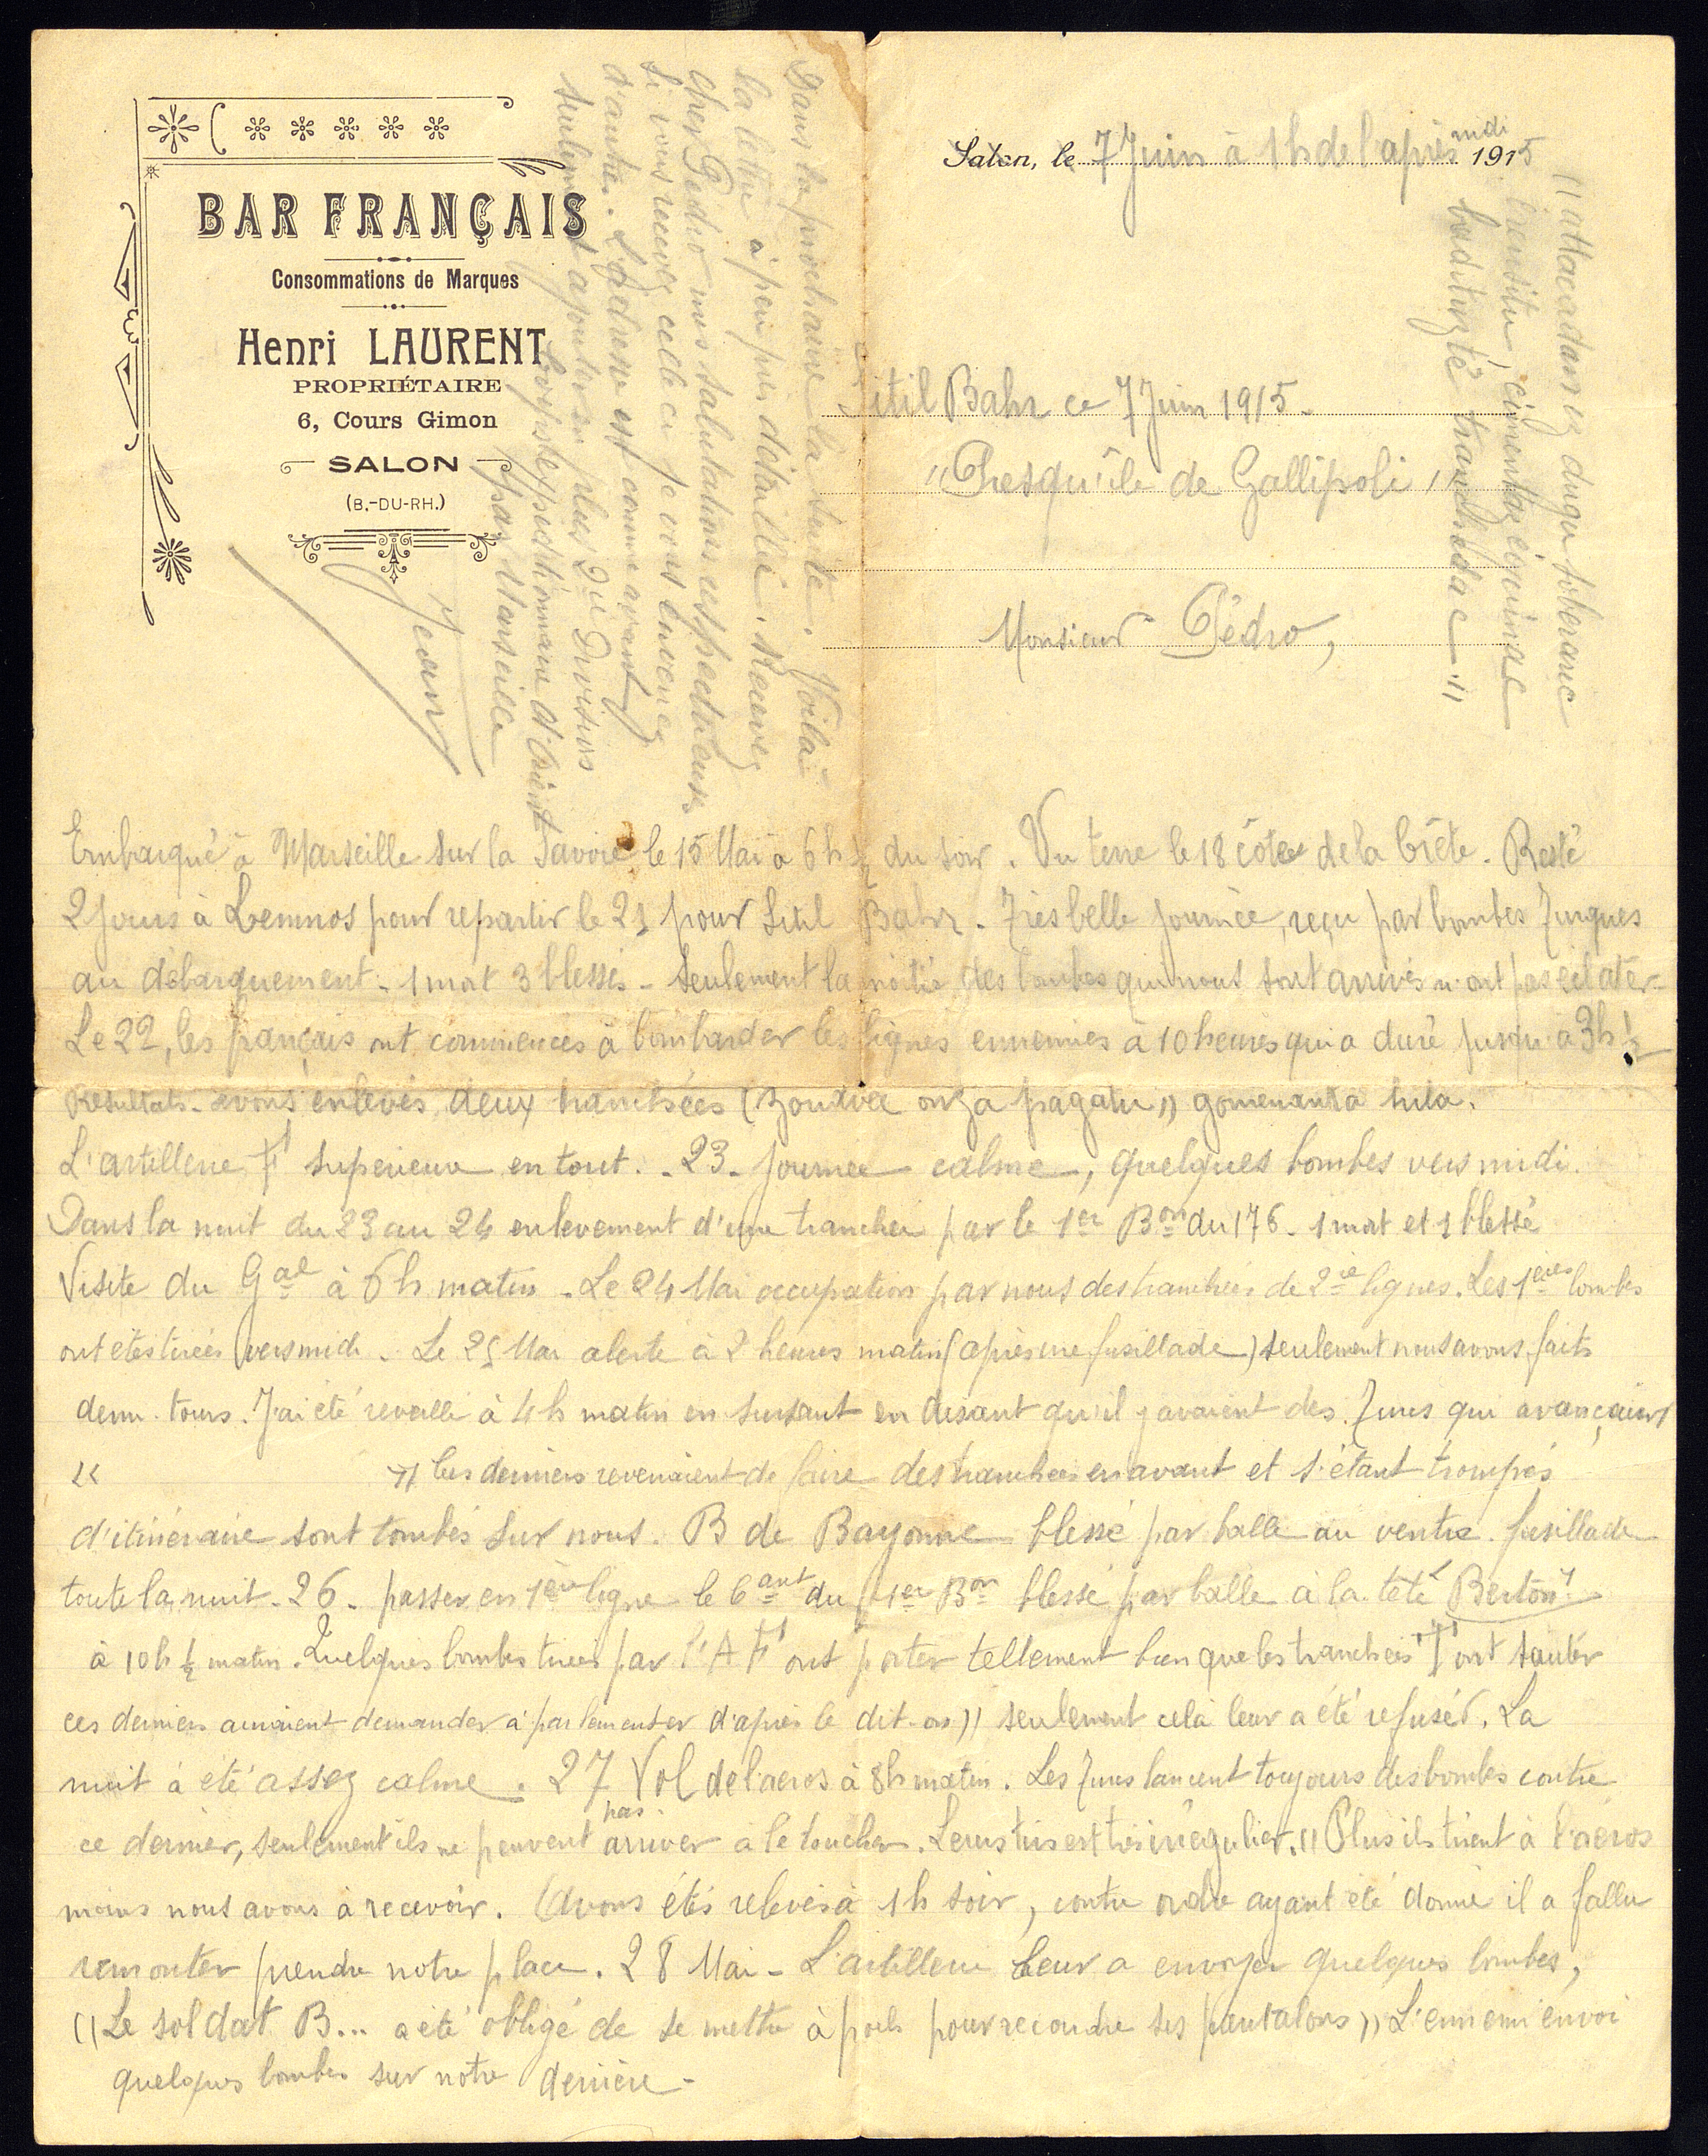 BAR FRANÇAIS
Consommations de Marques
Henri LAURENT
PROPRIÉTAIRE
6, Cours Gimon
SALON
(B.-DU-RH.)
Salon, le 7 Juin à 1h de l'après mdi 1915
Sitil Bahr ce 7 Juin 1915.
"Presqu'île de Gallipoli"
Monsieur Pédro,
Embarqué à Marseille sur la Savoie le 15 Mai à 6h ½ du soir. Vu terre le 18 côtes de la Crète. Resté
2 jours à Lemnos pour repartir le 21 pour Sitil Bahr. Très belle journée, reçu par bombes Turques
au débarquement. 1 mort 3 blessés. Seulement la moitié des bombes qui nous sont arrivés n'ont pas éclater.
Le 22, les français ont commencés à bombarder les lignes ennemies à 10 heures qui a duré jusqu'à 3h ½
Résultats. avons enlevés deux tranchées
L'artillerie F supérieure en tout. - 23. Journée calme, quelques bombes vers midi.
Dans la nuit du 23 au 24 enlevement d'une tranchée par le 1er Bon du 176. 1 mort et 1 blessé
Visite du Gal à 6h matin. Le 24 Mai occupation par nous des tranchées de 2ie lignes. Les 1ères bombes
ont étés tirées vers midi. Le 25 Mai alerte à 2 heures matin (après une fusillade) seulement nous avons faits
demi-tours. J'ai été reveillé à 4h matin en sursaut en disant qu'il y avaient des Turcs qui avançaient
" " Ces derniers revenaient de faire des tranchées en avant et s'étant trompés
d'itinéraire sont tombés sur nous. B de Bayonne blessé par balle au ventre. fusillade
toute la nuit. 26. passer en 1ère ligne le Cant du 1er Bon blessé par balle à la tête Berton
à 10h ½ matin. Quelques bombes tirées par l'A F ont porter tellement bien que les tranchées T ont sauter
ces derniers auraient demander à parlementer d'après le dit-on)) seulement celà leur a été refusér. La
nuit à été assez calme. 27 Vol de l'aeros à 8h matin. Les Turcs lancent toujours des bombes contre
ce dernier, seulement ils ne peuvent pas arriver à le toucher. Leurs tirs est très irrégulier. (( Plus ils tirent à l'aéros
moins nous avons à recevoir. Avons étés relevés à 1h soir, contre ordre ayant été donné il a fallu
remonter prendre notre place. 28 Mai - L'artillerie leur a envoyer quelques bombes,
(( Le soldat B... a été obligé de se mettre à poils pour recoudre ses pantalons )) L'ennemi envoi
quelques bombes sur notre derrière -
Dans la prochaine la suite. Voilà
la lettre à peu près détaillée. Recevez
cher Pédro mes salutations respectueuses
Si vous recevez celle ci je vous enverrez
d'autres. L'adresse est comme avant
seulement ajouter en plus 2e Division
Corps expéditionnaire d'Orient
par Marseille
Jean